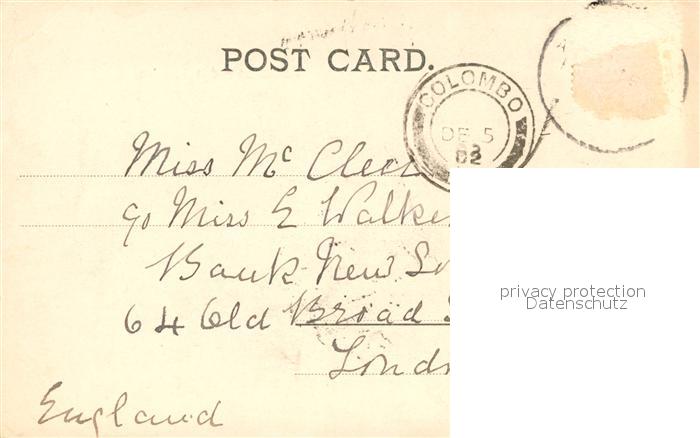 POST CARD.
COLOMBO
DE 5
02
Miss Mc
c/o Miss E Walke
Bank New So
64 Old Broad S
Lond
England
privacy protection
Datenschutz